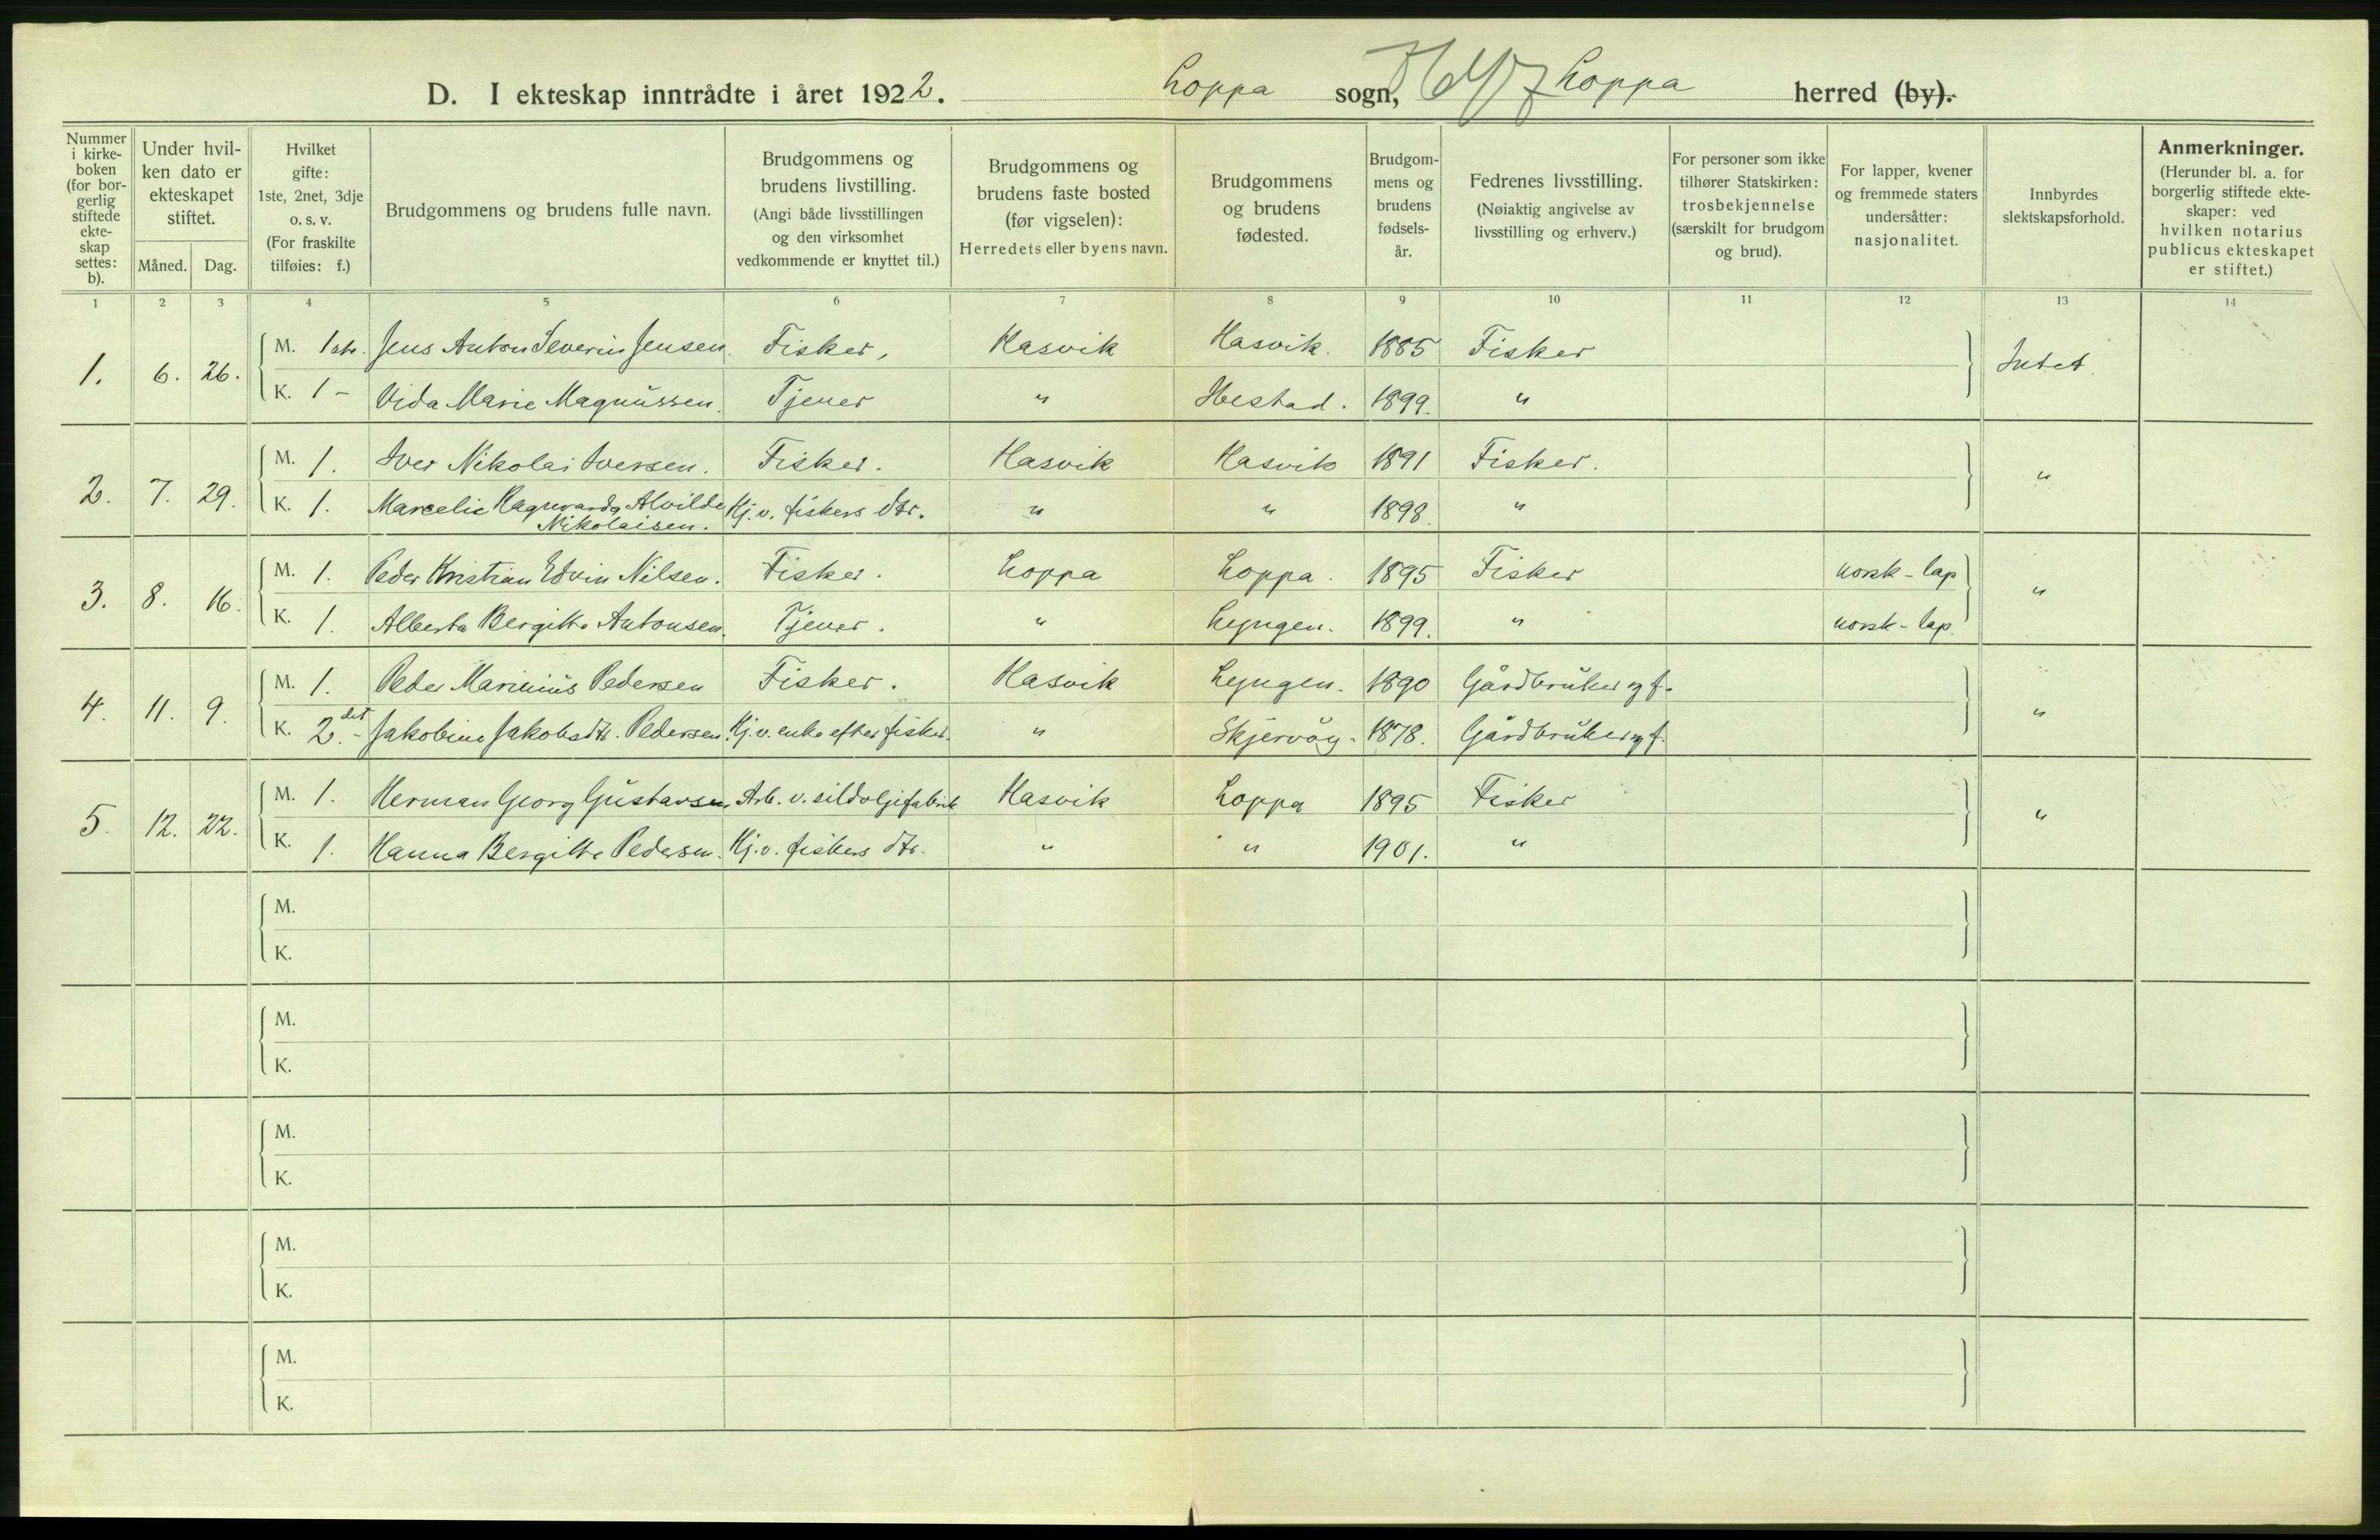 D. I ekteskap inntrådte i året 1922. Loppa sogn, Loppa herred (by).
Nummer i kirke-boken (for bor-gerlig stiftede ekte-skap settes: b).
Under hvil-ken dato er ekteskapet stiftet.
Måned. Dag.
Hvilket gifte: 1ste, 2net, 3dje o. s. v. (For fraskilte tilføies: f.)
Brudgommens og brudens fulle navn.
Brudgommens og brudens livstilling. (Angi både livsstillingen og den virksomhet vedkommende er knyttet til.)
Brudgommens og brudens faste bosted (før vigselen): Herredets eller byens navn.
Brudgommens og brudens fødested.
Brudgom-mens og brudens fødsels-år.
Fedrenes livsstilling. (Nøiaktig angivelse av livsstilling og erhverv.)
For personer som ikke tilhører Statskirken: trosbekjennelse (særskilt for brudgom og brud).
For lapper, kvener og fremmede staters undersåtter: nasjonalitet.
Innbyrdes slektskapsforhold.
Anmerkninger. (Herunder bl. a. for borgerlig stiftede ekte-skaper: ved hvilken notarius publicus ekteskapet er stiftet.)
1 2 3 4 5 6 7 8 9 10 11 12 13 14
1. 6. 26. M. 1ste. Jens Anton Severin Jensen. Fisker, Hasvik Hasvik. 1885 Fisker Intet.
K. 1 - Vida Marie Magnussen. Tjener " 1899. "
2. 7. 29. M. 1. Iver Nikolai Iversen. Fisker. Hasvik Hasvik 1891 Fisker. "
K. 1. Marcelie Ragnvarda Alvilde Nikolaisen. Hj. v. fiskers dtr. " " 1898. "
3. 8. 16. M. 1. Peder Kristian Edvin Nilsen. Fisker. Loppa Loppa. 1895 Fisker norsk-lap "
K. 1. Alberta Bergitte Antonsen. Tjener. " Lyngen. 1899. " norsk-lap.
4. 11. 9. M. 1. Peder Marinius Pedersen Fisker. Hasvik Lyngen. 1890 Gårdbruker og f. "
K. 2det.- Jakobine Jakobsdtr. Pedersen. Hj. v. enke efter fisker. " Skjervöy. 1878. Gårdbruker og f.
5. 12. 22. M. 1. Herman Georg Gustavsen Arb. v. sildoljefabrik Hasvik Loppa 1895 Fisker "
K. 1. Hanna Bergitte Pedersen. Hj. v. fiskers dtr. " " 1901. "
M.
K.
M.
K.
M.
K.
M.
K.
M.
K.